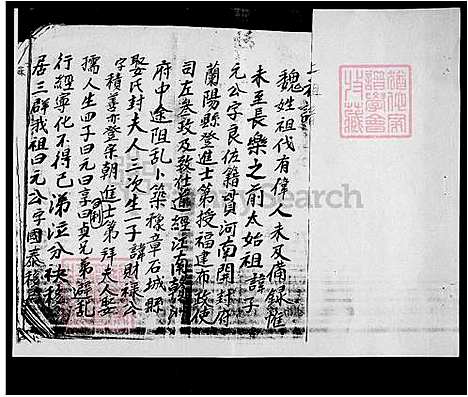 上祖譜
魏姓祖代有偉人未及備錄唯
未至長樂之前太始祖諱子
元公字良佐籍貫河南開封府
蘭陽縣登進士第授福建布政使
司左參政及致仕道經江南贛州
府中途阻乱卜築豫章石城縣
娶氏封夫人三次生一子諱財祿公
字積善亦登宋朝進士第拜夫人娶
孺人生四子曰元曰亨曰利曰貞兄弟避乱
行經寧化不得已涕泣分袂移
居三群我祖曰元公字國泰移居